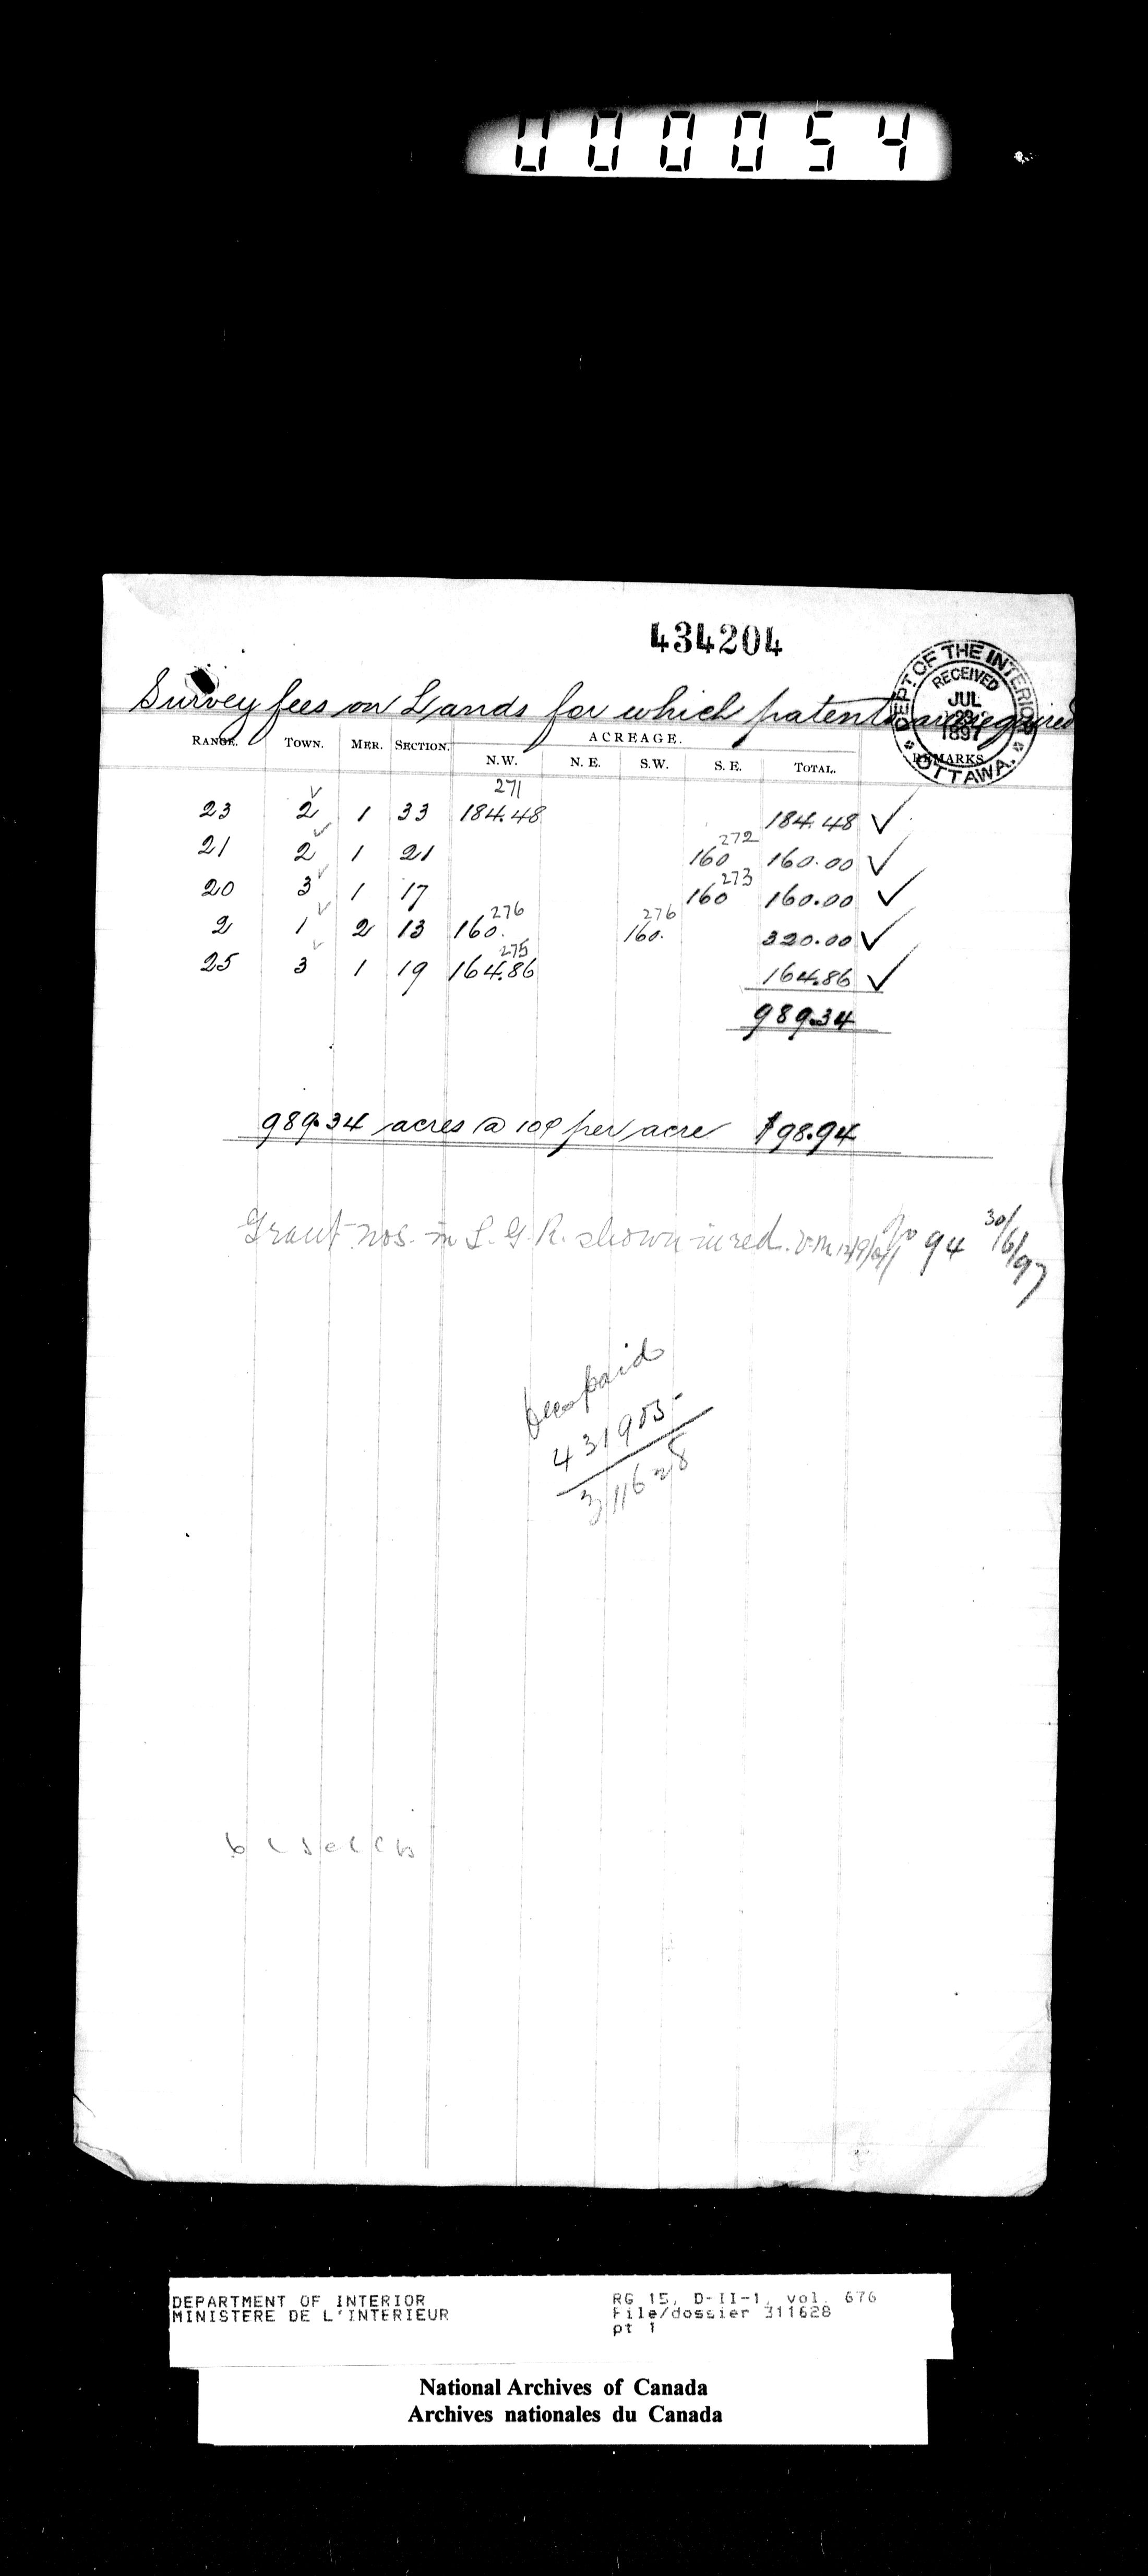 000054
434204
DEPT. OF THE INTERIOR
RECEIVED
JUL
29
1897
OTTAWA.
Survey fees on Lands for which patents are required
RANGE. TOWN. MER. SECTION. ACREAGE. REMARKS
N.W. N.E. S.W. S.E. TOTAL.
271
23 2 1 33 184.48 184.48 ✓
272
21 2 1 21 160 160.00 ✓
273
20 3 1 17 160 160.00 ✓
276 276
2 1 2 13 160. 160. 320.00 ✓
275
25 3 1 19 164.86 164.86 ✓
989.34
989.34 acres @ 10¢ per acre $98.94
Grant nos. in L. G. R. shown in red. 94 30/6/97
paid
431903
311628
DEPARTMENT OF INTERIOR
MINISTERE DE L'INTERIEUR
RG 15, D-II-1, vol. 676
File/dossier 311628
pt 1
National Archives of Canada
Archives nationales du Canada